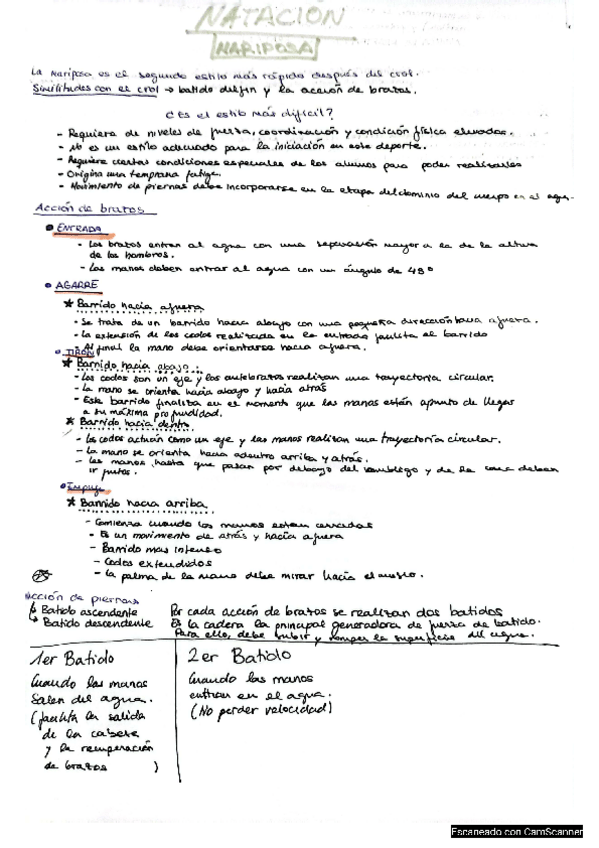 NATACIÓN
MARIPOSA
La Mariposa es el segundo estilo más rápido después del crol.
Similitudes con el crol → batido delfín y la acción de brazos.
¿Es el estilo más difícil?
- Requiere de niveles de fuerza, coordinación y condición física elevados.
- No es un estilo adecuado para la iniciación en este deporte.
- Requiere ciertas condiciones especiales de los alumnos para poder realizarlos
- Origina una temprana fatiga.
- Movimiento de piernas debe incorporarse en la etapa del dominio del cuerpo en el agua.
Acción de brazos
• ENTRADA
- Los brazos entran al agua con una separación mayor a la de la altura
de los hombros.
- Las manos deben entrar al agua con un ángulo de 45º
• AGARRE
* Barrido hacia afuera
- Se trata de un barrido hacia abajo con una pequeña dirección hacia afuera.
- La extensión de los codos realizada en la entrada facilita el barrido
- Al final la mano debe orientarse hacia afuera.
• TIRÓN
* Barrido hacia abajo
- Los codos son un eje y los antebrazos realizan una trayectoria circular.
- La mano se orienta hacia abajo y hacia atrás
- Este barrido finaliza en el momento que las manos están apunto de llegar
a su máxima profundidad.
* Barrido hacia dentro
- Los codos actúan como un eje y las manos realizan una trayectoria circular.
- La mano se orienta hacia adentro arriba y atrás.
- Las manos, hasta que pasan por debajo del ombligo y de la cara deben
ir juntas.
• Empuje
* Barrido hacia arriba
- Comienza cuando las manos están cerradas
- Es un movimiento de atrás y hacia afuera
- Barrido más intenso
- Codos extendidos
- La palma de la mano debe mirar hacia el muslo.
Acción de piernas
↳ Batido ascendente
↳ Batido descendente
Por cada acción de brazos se realizan dos batidos
Es la cadera la principal generadora de fuerza de batido.
Para ello, debe subir y romper la superficie del agua.
1er Batido
Cuando las manos
salen del agua.
(facilita la salida
de la cabeza
y la recuperación
de brazos )
2er Batido
Cuando las manos
entran en el agua.
(No perder velocidad)
Escaneado con CamScanner